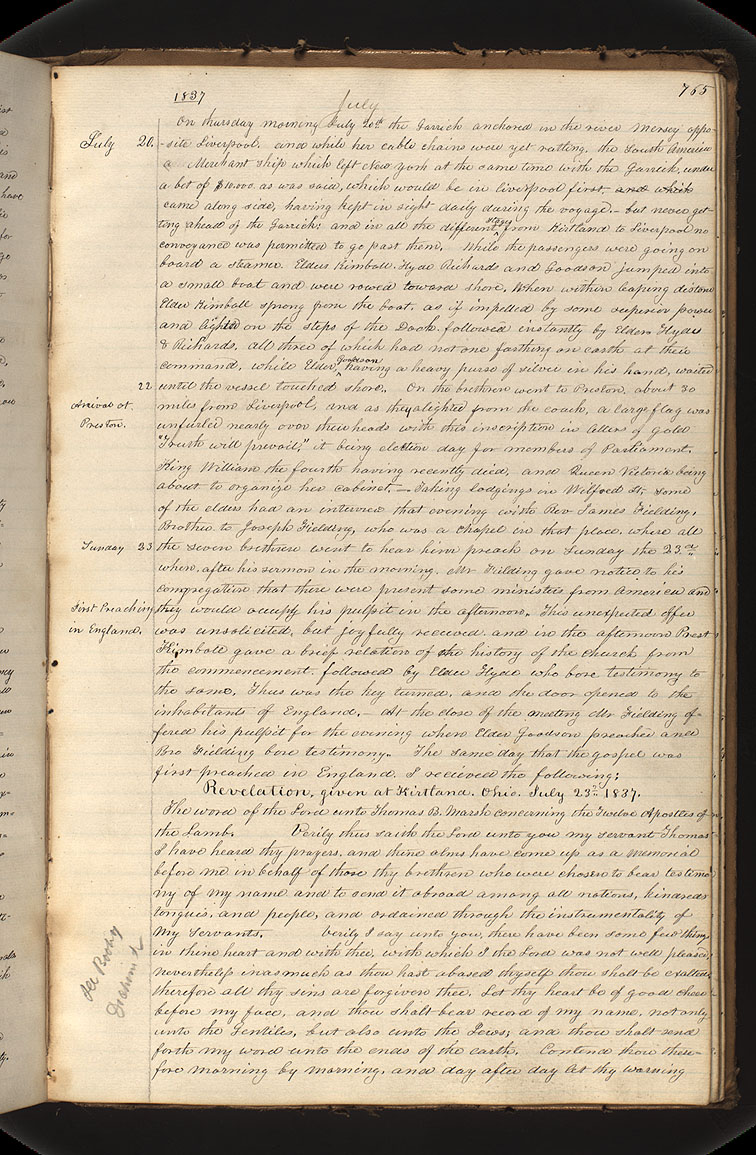 1837
July
765
On thursday morning July 20th the Garrick anchored in the river Mersey oppo-
July 20.
-site Liverpool, and while her cable chains were yet rattling, the South America
a Merchant ship which left New York at the same time with the Garrick, under
a bet of $10,000 as was said, which would be in liverpool first, and which
came along side, having kept in sight daily during the voyage.— but never get-
ting ahead of the Garrick; and in all the different stages from Kirtland to Liverpool no
conveyance was permitted to go past them. While the passengers were going on
board a steamer, Elders Kimball, Hyde Richards and Goodson jumped into
a small boat and were rowed toward shore, When within leaping distance
Elder Kimball sprong from the boat, as if impelled by some superior power
and lighted on the steps of the Dock, followed instantly by Elders Hyde
& Richards, all three of which had not one farthing on earth at their
command, while Elder Goodson having a heavy purse of silver in his hand, waited
22
until the vessel touched shore. On the brethren went to Preston, about 30
Arrival at
Preston.
miles from Liverpool, and as they alighted from the coach, a large flag was
unfurled nearly over their heads with this inscription in letters of gold
"Truth will prevail," it being election day for members of Parliament,
King William the fourth having recently died, and Queen Victoria being
about to organize her cabinet.— Taking lodgings in Wilford St, some
of the elders had an interview that evening with Rev James Fielding,
Brother to Joseph Fielding, who was a chapel in that place, where all
Sunday 23
the seven brethren went to hear him preach on Sunday the 23rd
when, after his sermon in the morning, Mr Fielding gave notice to his
congregation that there were present some ministers from America and
First Preaching
in England.
they would occupy his pulpit in the afternoon. This unexpected offer
was unsolicited, but joyfully received, and in the afternoon Prest
Kimball gave a brief relation of the history of the church from
the commencement, followed by Elder Hyde who bore testimony to
the same, Thus was the key turned, and the door opened to the
inhabitants of England.— At the close of the meeting Mr Fielding of-
fered his pulpit for the evening where Elder Goodson preached and
Bro Fielding bore testimony. The same day that the gospel was
first preached in England I received the following;
Revelation, given at Kirtland, Ohio. July 23rd 1837.
The word of the Lord unto Thomas B. Marsh concerning the Twelve Apostles of
the Lamb. Verily thus saith the Lord unto you my servant Thomas
I have heard thy prayers, and thine alms have come up as a memorial
before me in behalf of those thy brethren who were chosen to bear testimo
ny of my name and to send it abroad among all nations, kindreds
tongues, and people, and ordained through the instrumentality of
my servants. Verily I say unto you, there have been some few things
in thine heart and with thee, with which I the Lord was not well pleased;
nevertheless inasmuch as thou hast abased thyself thou shalt be exalted
therefore all thy sins are forgiven thee. Let thy heart be of good cheer
before my face, and thou shalt bear record of my name, not only
unto the Gentiles, but also unto the Jews; and thou shalt send
forth my word unto the ends of the earth. Contend thou there-
fore morning by morning, and day after day let thy warning